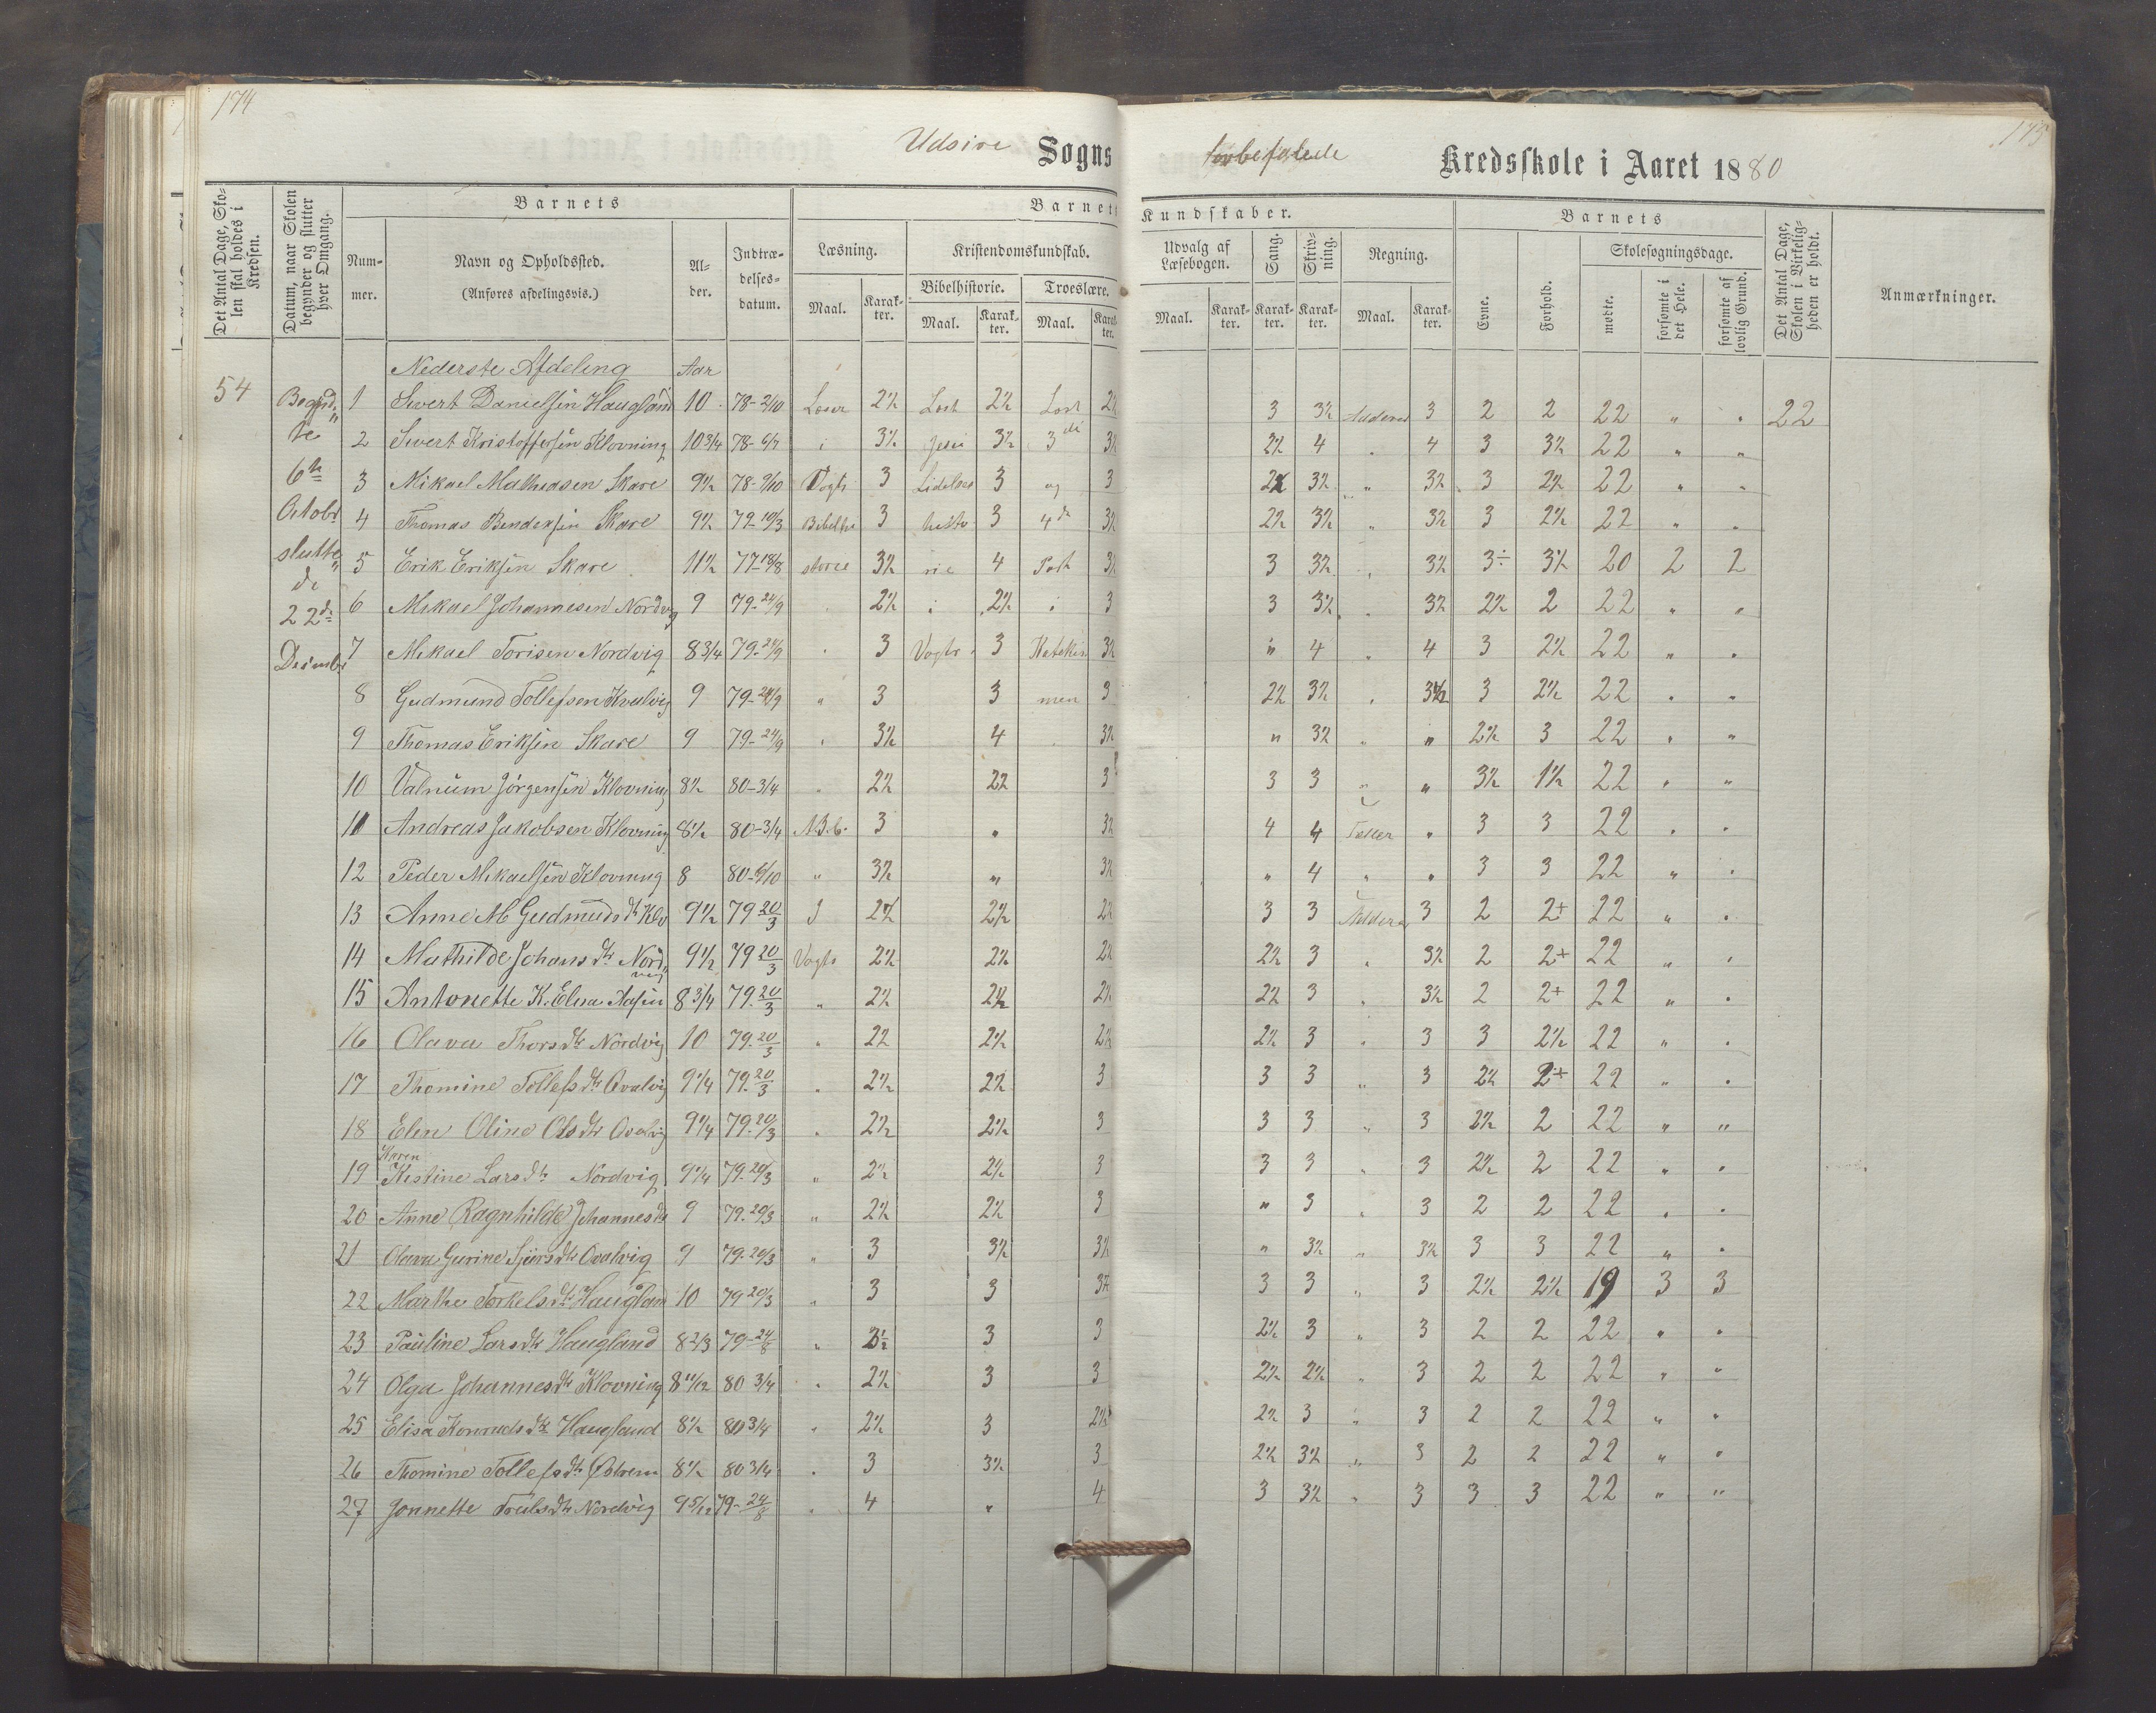 174
175
Udsire Sogns
Kredsskole i Aaret 1880
Det Antal Dage, Skolen skal holdes i Kredsen.
Datum, naar Skolen begynder og slutter hver Omgang.
Barnets
Nummer.
Navn og Opholdssted.
(Anføres afdelingsvis.)
Alder.
Indtrædelsesdatum.
Barnets Kundskaber.
Læsning.
Maal.
Karakter.
Kristendomskundskab.
Bibelhistorie.
Maal.
Karakter.
Troeslære.
Maal.
Karakter.
Udvalg af Læsebogen.
Maal.
Karakter.
Sang.
Karakter.
Skrivning.
Karakter.
Regning.
Maal.
Karakter.
Barnets
Evne.
Forhold.
Skolesøgningsdage.
mødte.
forsømte i det Hele.
forsømte af lovlig Grund.
Det Antal Dage, Skolen i Virkeligheden er holdt.
Anmærkninger.
Nederste Afdeling Aar
54 Begynd- 1 Sivert Danielsen Haugland 10 78-2/10 Læser 2½ Læst 2½ Læst 2½ 3 3½ Adderer 3 2 2 22 " " 22
te 2 Sivert Kristoffersen Klovning 10 3/4 78- 6/7 i 3½ Jesu 3½ 3die 3½ 2½ 4 " 4 3 3½ 22 " "
6te 3 Mikael Mathiasen Skare 9½ 78-9/10 Vogts 3 Lidelses 3 og 3 2½ 3½ " 3½ 3 2½ 22 " "
Octobr 4 Thomas Bendiksen Skare 9½ 79-10/3 Bibelhi 3 histo 3 4de 3½ 2½ 3½ " 3½ 3 2½ 22 " "
slutte- 5 Erik Eriksen Skare 11½ 77-18/8 storie 3½ rie 4 Part 3½ 3 3½ " 3½ 3÷ 3½ 20 2 2
de
22de 6 Mikael Johannesen Nordvig 9 79-24/9 " 2½ i 2½ i 3 3 3½ " 3½ 2½ 2 22 " "
Desembr 7 Mikael Torisen Nordvig 8 3/4 79-24/9 " 3 Vogts 3 Katekis 3½ " 4 " 4 3 2½ 22 " "
8 Gudmund Tollefsen Kvalvig 9 79-24/9 " 3 3 men 3 2½ 3½ " 3½ 3 2½ 22 " "
9 Thomas Eriksen Skare 9 79-24/9 " 3½ 4 3½ " 3½ " " 2½ 3 22 " "
10 Valnum Jørgensen Klovning 8½ 80-3/4 " 2½ 2½ 3 3 3 " " 3½ 1½ 22 " "
11 Andreas Jakobsen Klovning 8½ 80-3/4 A.B.C. 3 " 3½ 4 4 Tæller " 3 3 22 " "
12 Peder Mikaelsen Klovning 8 80-6/10 " 3½ " 3½ " 4 " " 3 3 22 " "
13 Anne M Gudmunds dtr Klo 9½ 79 20/3 I 2½ 2½ 2½ 3 3 Adderer 3 2 2+ 22 " "
14 Mathilde Johans dtr Nordvig 9½ 79 20/3 Vogts 2½ 2½ 2½ 2½ 3 " 3½ 2 2+ 22 " "
15 Antonette K. Elna Aasen 8 3/4 79.20/3 " 2½ 2½ 2½ 2½ 3 " 3½ 2 2+ 22 " "
16 Olava Thorsdtr Nordvig 10 79.20/3 " 2½ 2½ 2½ 2½ 3 " 3 3 2½ 22 " "
17 Thomine Tollefsdtr Qvalvig 9 1/4 79.20/3 " 2½ 2½ 3 3 3 " 3 2½ 2+ 22 " "
18 Elen Oline Olsdtr Qvalvig 9 1/4 79.20/3 " 2½ 2½ 3 3 3 " 3 2½ 2 22 " "
Karen
19 Kistine Larsdtr Nordvig 9 1/4 79.20/3 " 2½ 2½ 3 3 3 " 3 2½ 2 22 " "
20 Anne Ragnhilde Johannesdtr 9 79.20/3 " 2½ 2½ 3 " 3 " 3 2 2 22 " "
21 Olava Gurine Sjursdtr Qvalvig 9 79.20/3 " 3 3½ 3½ " 3½ " 3½ 3 3 22 " "
22 Marthe Torkelsdtr Haugland 10 79 20/3 " 3 3 3½ 3 3 " 3 2½ 2½ 19 3 3
23 Pauline Larsdtr Haugland 8 2/3 79-24/8 " 3½ 3 3 2½ 3 " 3 2 2 22 " "
24 Olga Johannesdtr Klovning 8 11/12 80 3/4 " 2½ 3 3 2½ 2½ " 3 2 2 22 " "
25 Elisa Konradsdtr Haugland 8½ 80 3/4 " 2½ 3 2½ 2½ 3 " 3 2 2 22 " "
26 Thomine Tollefsdtr Østrem 8½ 80 3/4 " 3 3½ 3 2½ 3½ " 3 2 2 22 " "
27 Jonnette Trulsdtr Nordvig 9 5/12 79-24/8 " 4 " 4 3 3½ " 3 3 3 22 " "